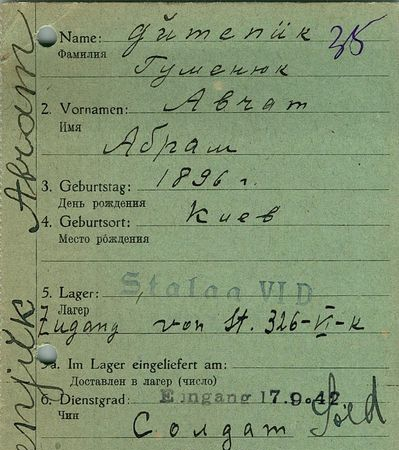 Name: 35
Фамилия
Гуменюк
2. Vornamen: Авчат
Имя
Абрам
3. Geburtstag: 1896 г.
День рождения
4. Geburtsort: Киев
Место рождения
5. Lager: Stalag VI D
Лагер
Zugang von St. 326-VI-K
5a. Im Lager eingeliefert am:
Доставлен в лагер (число)
6. Dienstgrad: Eingang 17.9.42
Чин
Солдат
Abram